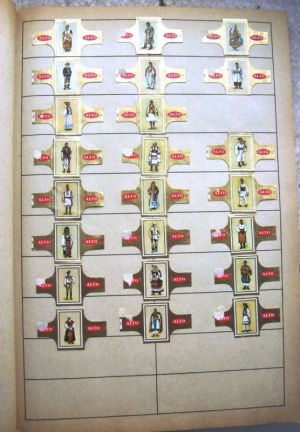 ALTO ALTO ALTO ALTO ALTO ALTO
ALTO ALTO ALTO ALTO ALTO ALTO
ALTO ALTO ALTO ALTO
ALTO ALTO ALTO
ALTO ALTO ALTO ALTO ALTO
ALTO ALTO ALTO ALTO ALTO
ALTO ALTO ALTO
ALTO ALTO ALTO